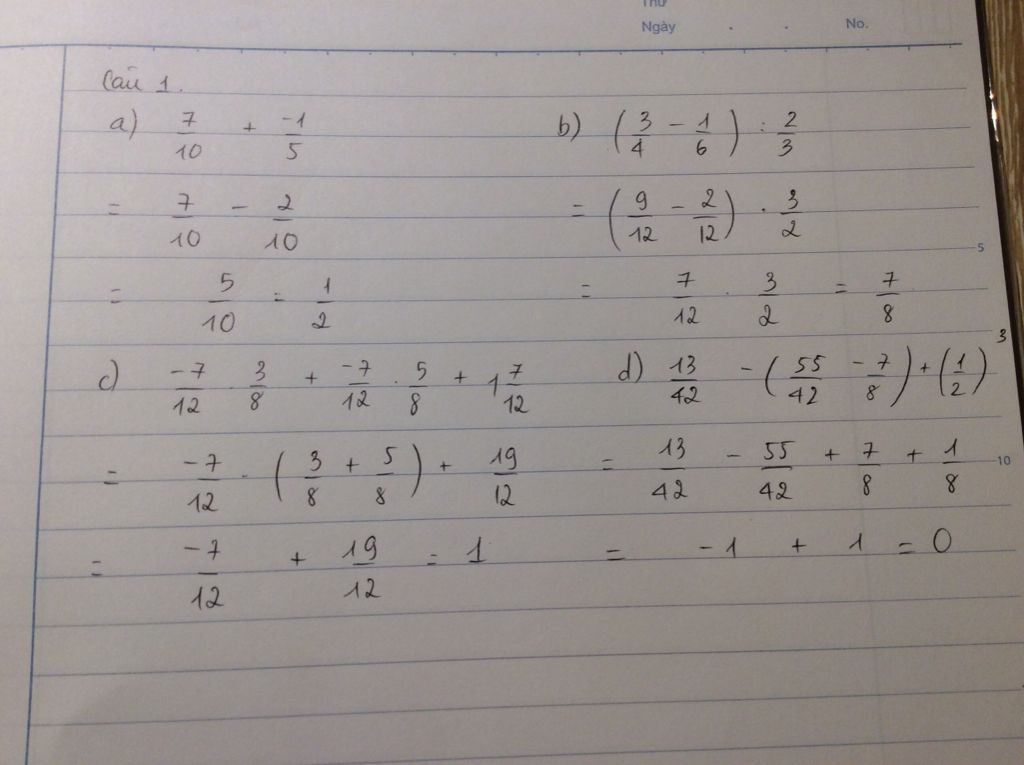 Thứ
Ngày . . No.
Câu 1.
a) 7/10 + -1/5
= 7/10 - 2/10
= 5/10 = 1/2
b) (3/4 - 1/6) : 2/3
= (9/12 - 2/12) . 3/2
= 7/12 . 3/2 = 7/8
5
c) -7/12 . 3/8 + -7/12 . 5/8 + 1 7/12
= -7/12 . (3/8 + 5/8) + 19/12
= -7/12 + 19/12 = 1
d) 13/42 - (55/42 - 7/8) + (1/2)³
= 13/42 - 55/42 + 7/8 + 1/8
= -1 + 1 = 0
10